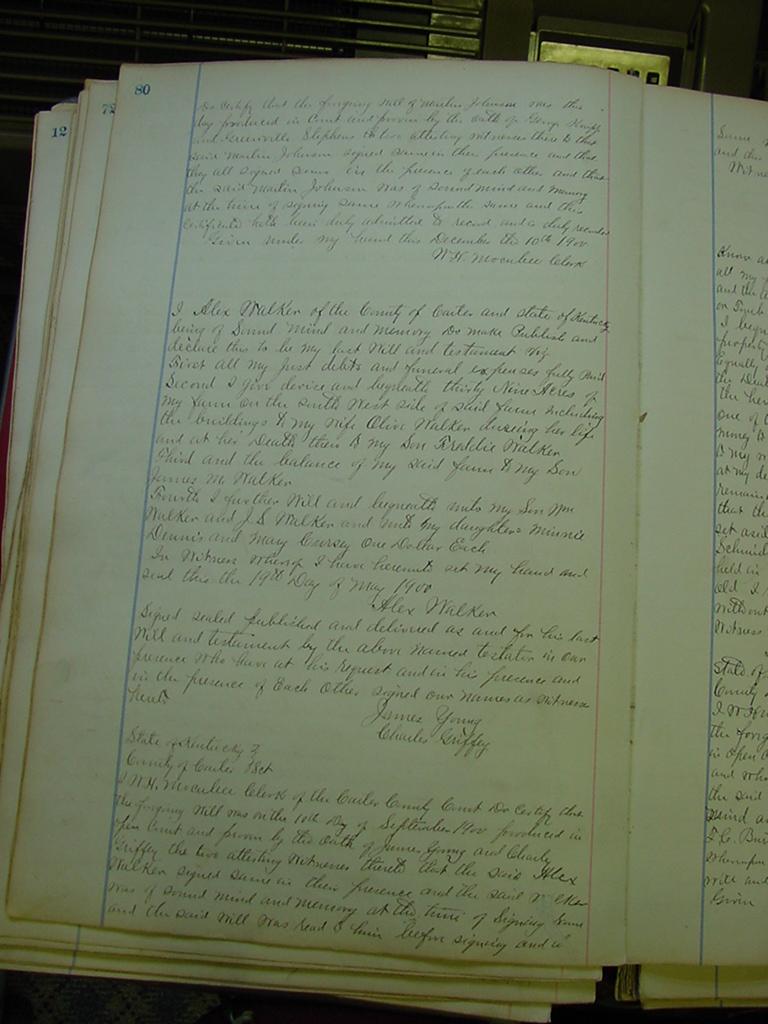 80
72
12
Do Certify that the forgoing will of Martin Johnson was this
day produced in Court and proven by the oath of George
and Greenville Stephens the two attesting witnesses there to that
said Martin Johnson signed same in their presence and that
they all signed same in the presence of each other and that
the said Martin Johnson was of sound mind and memory
at the time of signing same whereupon the same and this
Certificate hath been duly admitted to record and is duly recorded
Given under my hand this December the 10th 1900
W.H. Mocabee Clerk
I Alex Walker of the County of Carter and state of Kentucky
being of Sound Mind and memory Do make Publish and
declare this to be my last Will and testament Viz
First all my just debts and funeral expenses fully Paid
Second I give device and bequeath thirty Nine Acres of
my farm on the south West side of said farm including
the buildings to my wife Olive Walker during her life
and at her Death then to my Son Freddie Walker
Third and the balance of my said farm to my Son
James M. Walker
Fourth I further Will and bequeath unto my Son Wm
Walker and J.S. Walker and unto my daughters Minnie
Dennis and Mary Cursey One Dollar Each
In Witness whereof I have hereunto set my hand and
seal this the 19th Day of May 1900
Alex Walker
Signed sealed published and delivered as and for his last
Will and testament by the above named testator in our
presence who have at his request and in his presence and
in the presence of Each Other signed our names as witness
hereto
James Young
Charles Griffey
State of Kentucky }
County of Carter } Sct
I W.H. Mocabee Clerk of the Carter County Court Do Certify that
the forgoing Will was on the 10th Day of September 1900 produced in
open Court and proven by the Oath of James Young and Charly
Griffey the two attesting Witnesses thereto that the said Alex
Walker signed same in their presence and the said Walker
was of sound mind and memory at the time of Signing Same
and the said Will was read to him before signing and is
Same
and this
Know a
all my
and the
or
I beque
property
Equally
the Dea
the her
one of
money to
to my
at my de
remain
that the
set asid
Schmid
held in
old I
without
Witness
State of
County
I W H
the forg
in open C
and who
the said
mind a
whereupon
will and
Given